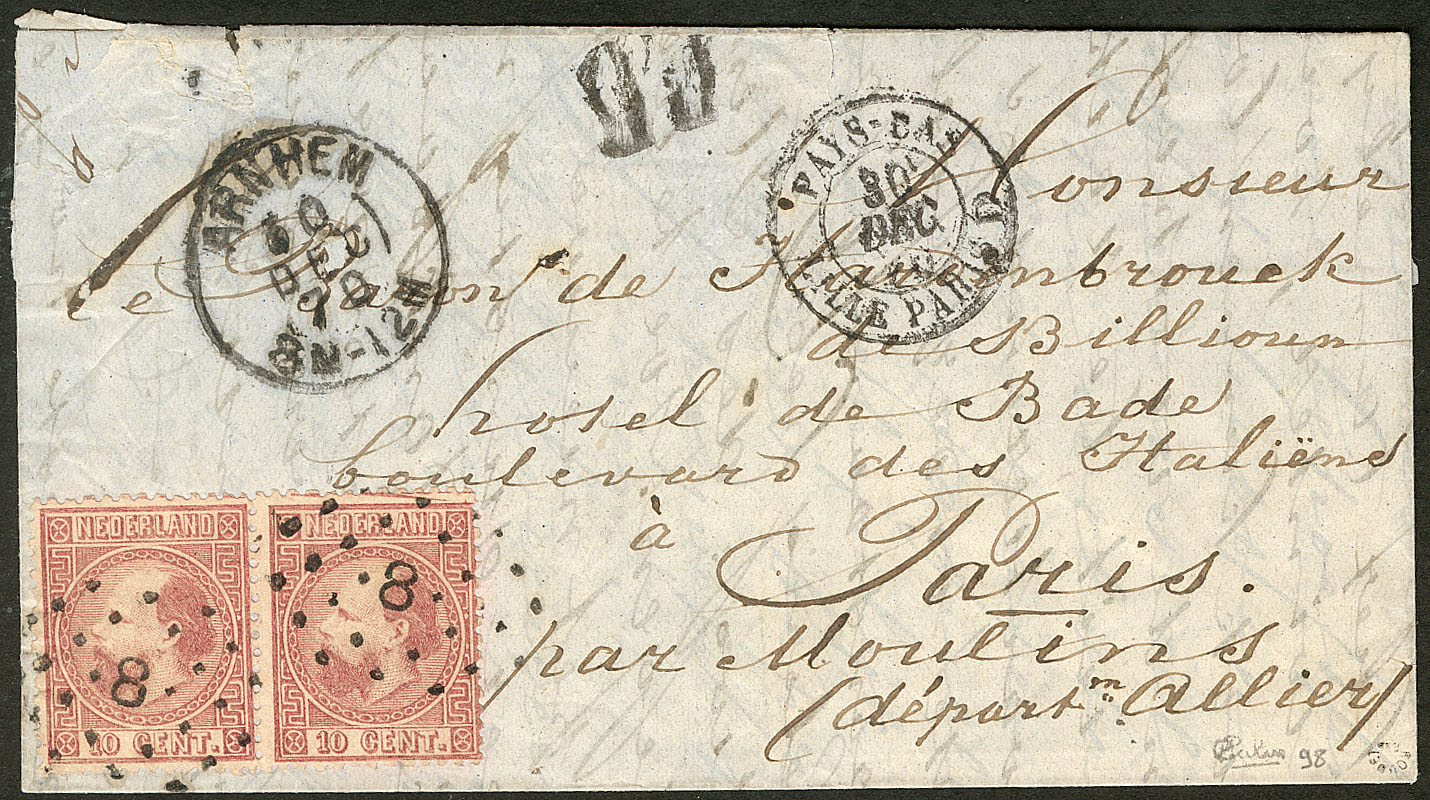 PD
ARNHEM
10
DEC
70
8M-12M
PAYS-BAS
30
DEC
LILLE PARIS D
Monsieur
le Baron de Hardenbrouck
de Billioun
hotel de Bade
boulevard des Italiëns
à
Paris.
par Moulins
(départm Allier)
NEDERLAND NEDERLAND
8 8
10 CENT. 10 CENT.
98